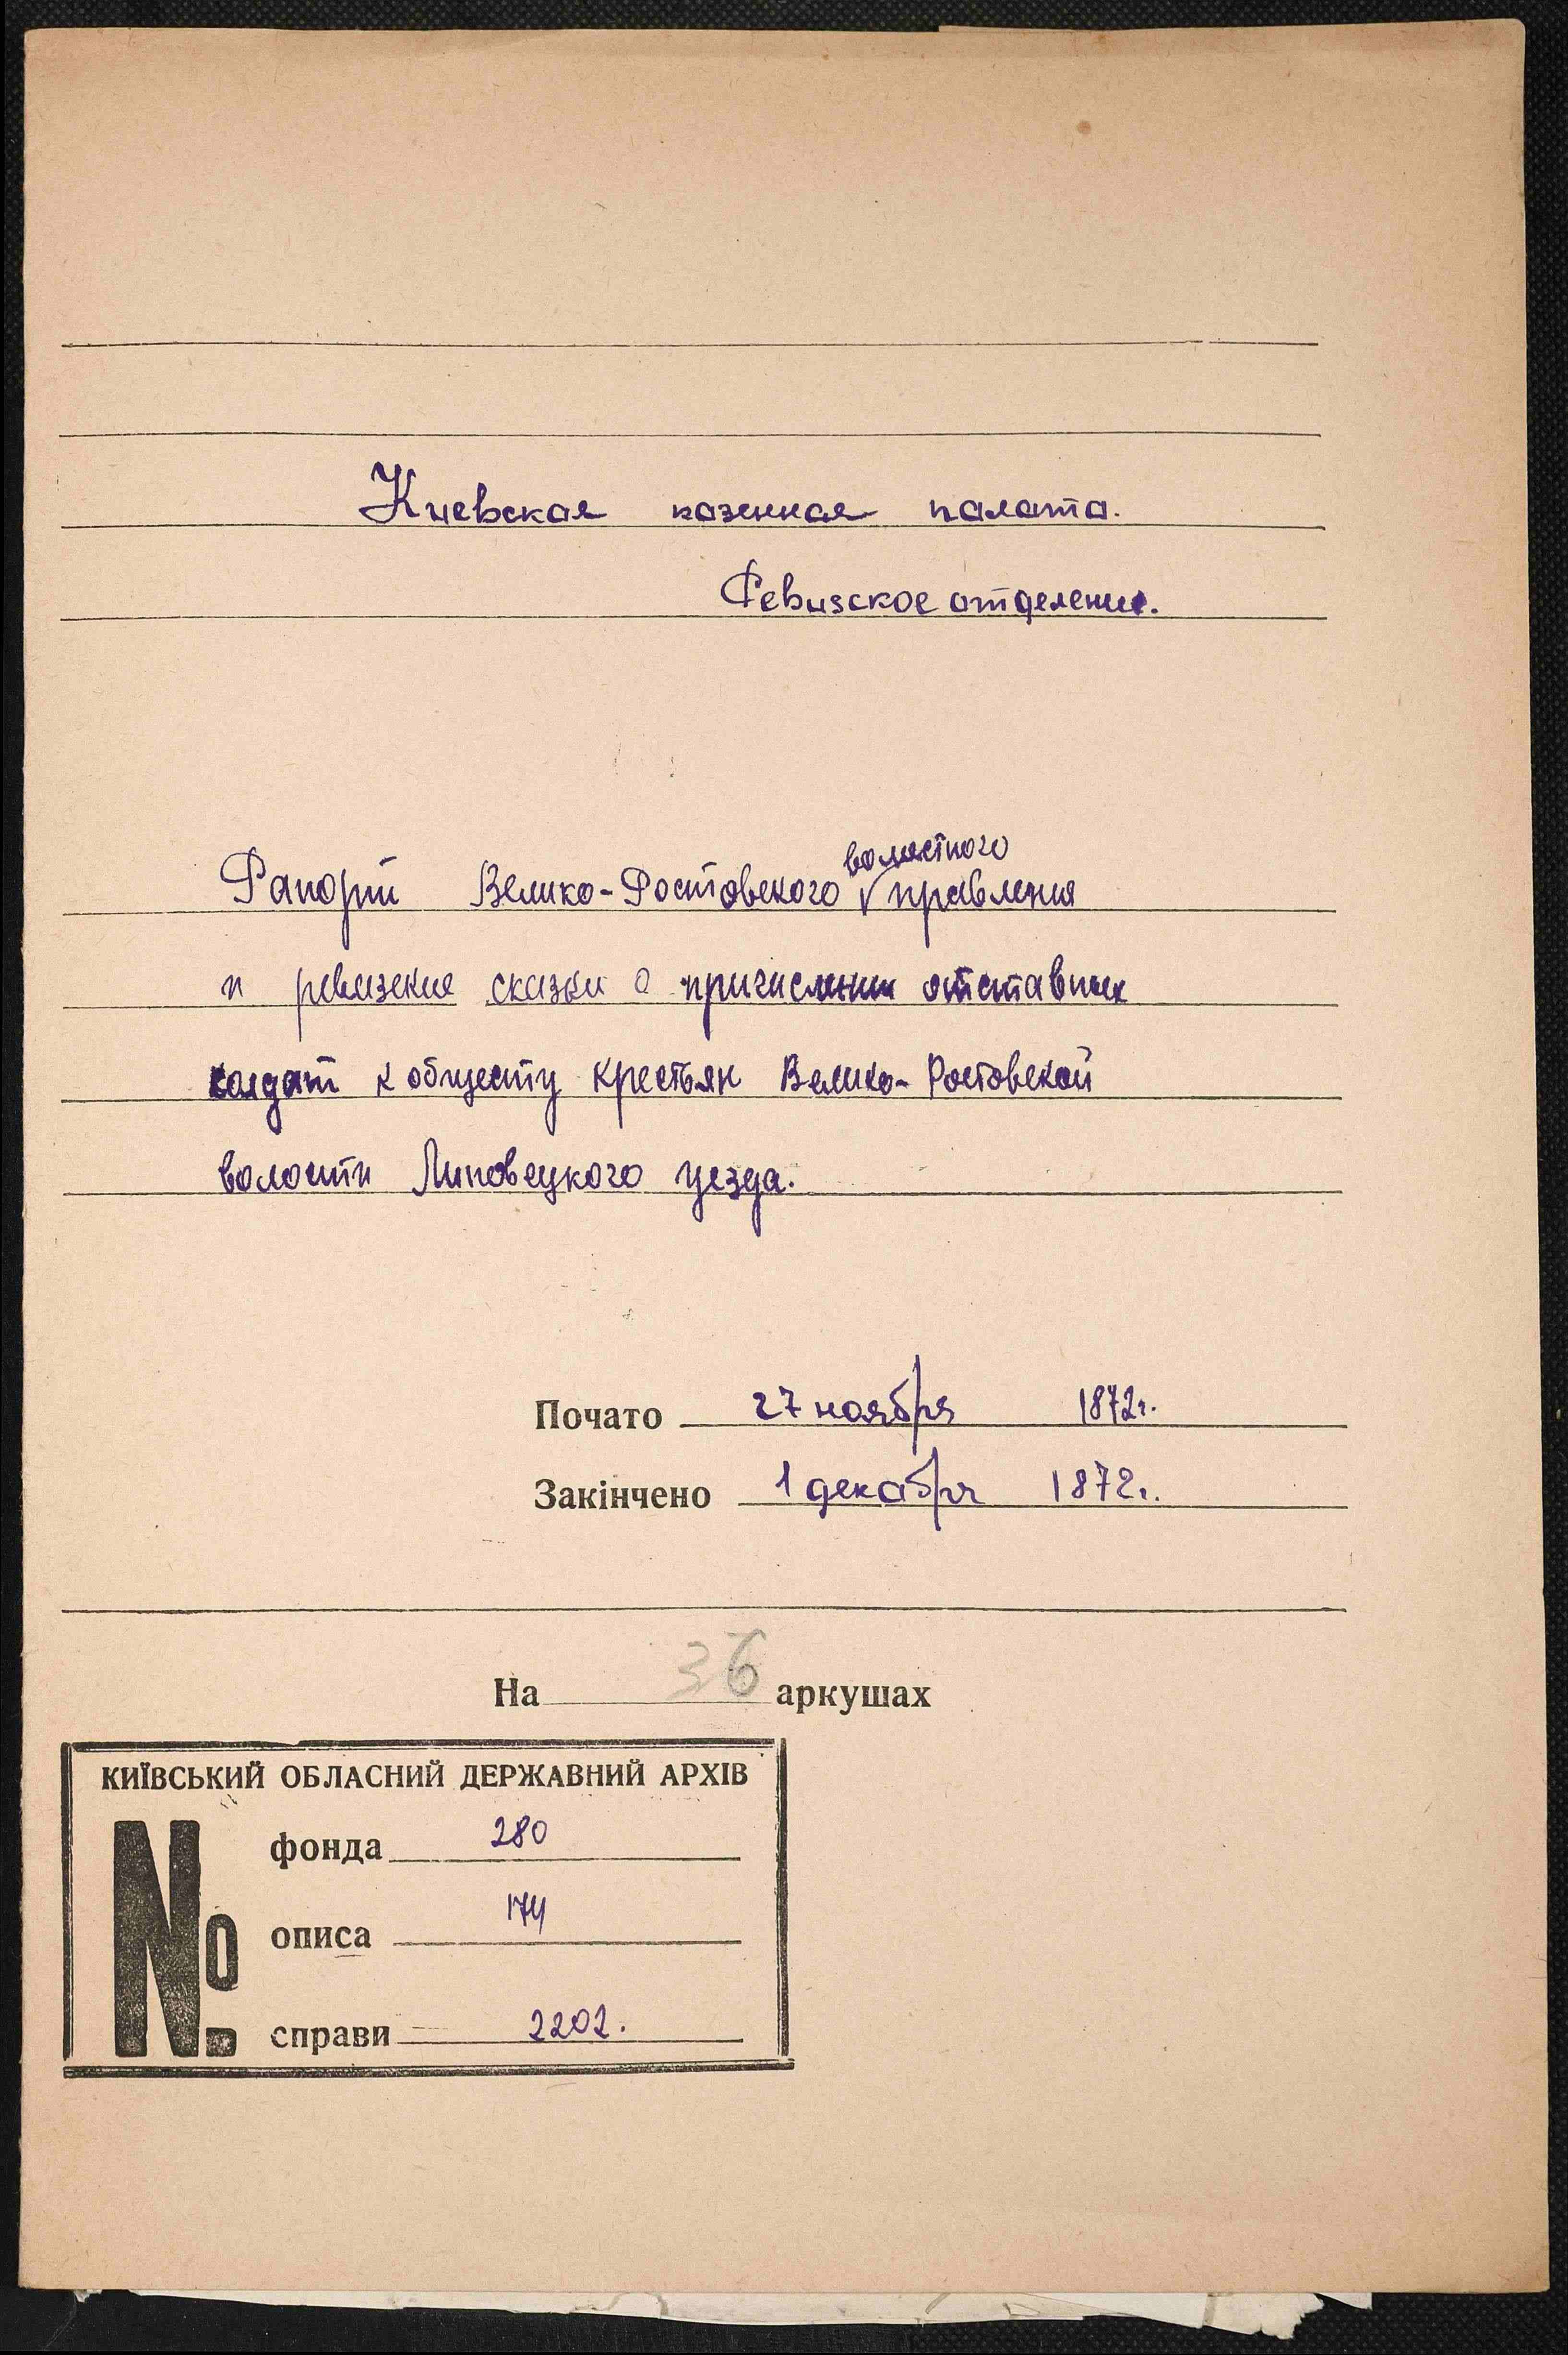 Киевская казенная палата.
Ревизское отделение.
волостного
Рапорт Велико-Ростовского √ правления
и ревизские сказки о причислении отставных
солдат к обществу крестьян Велико-Ростовской
волости Липовецкого уезда.
Почато 27 ноября 1872г.
Закінчено 1 декабря 1872г.
На 36 аркушах
КИЇВСЬКИЙ ОБЛАСНИЙ ДЕРЖАВНИЙ АРХІВ
№
фонда 280
описа 174
справи 2202.